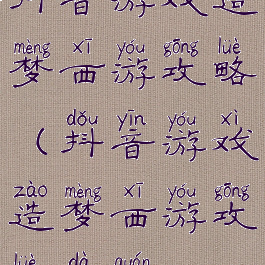 抖音游戏造
mèng xī yóu gōng lüè
梦西游攻略
dǒu yīn yóu xì
（抖音游戏
zào mèng xī yóu gōng
造梦西游攻
lüè dà quán